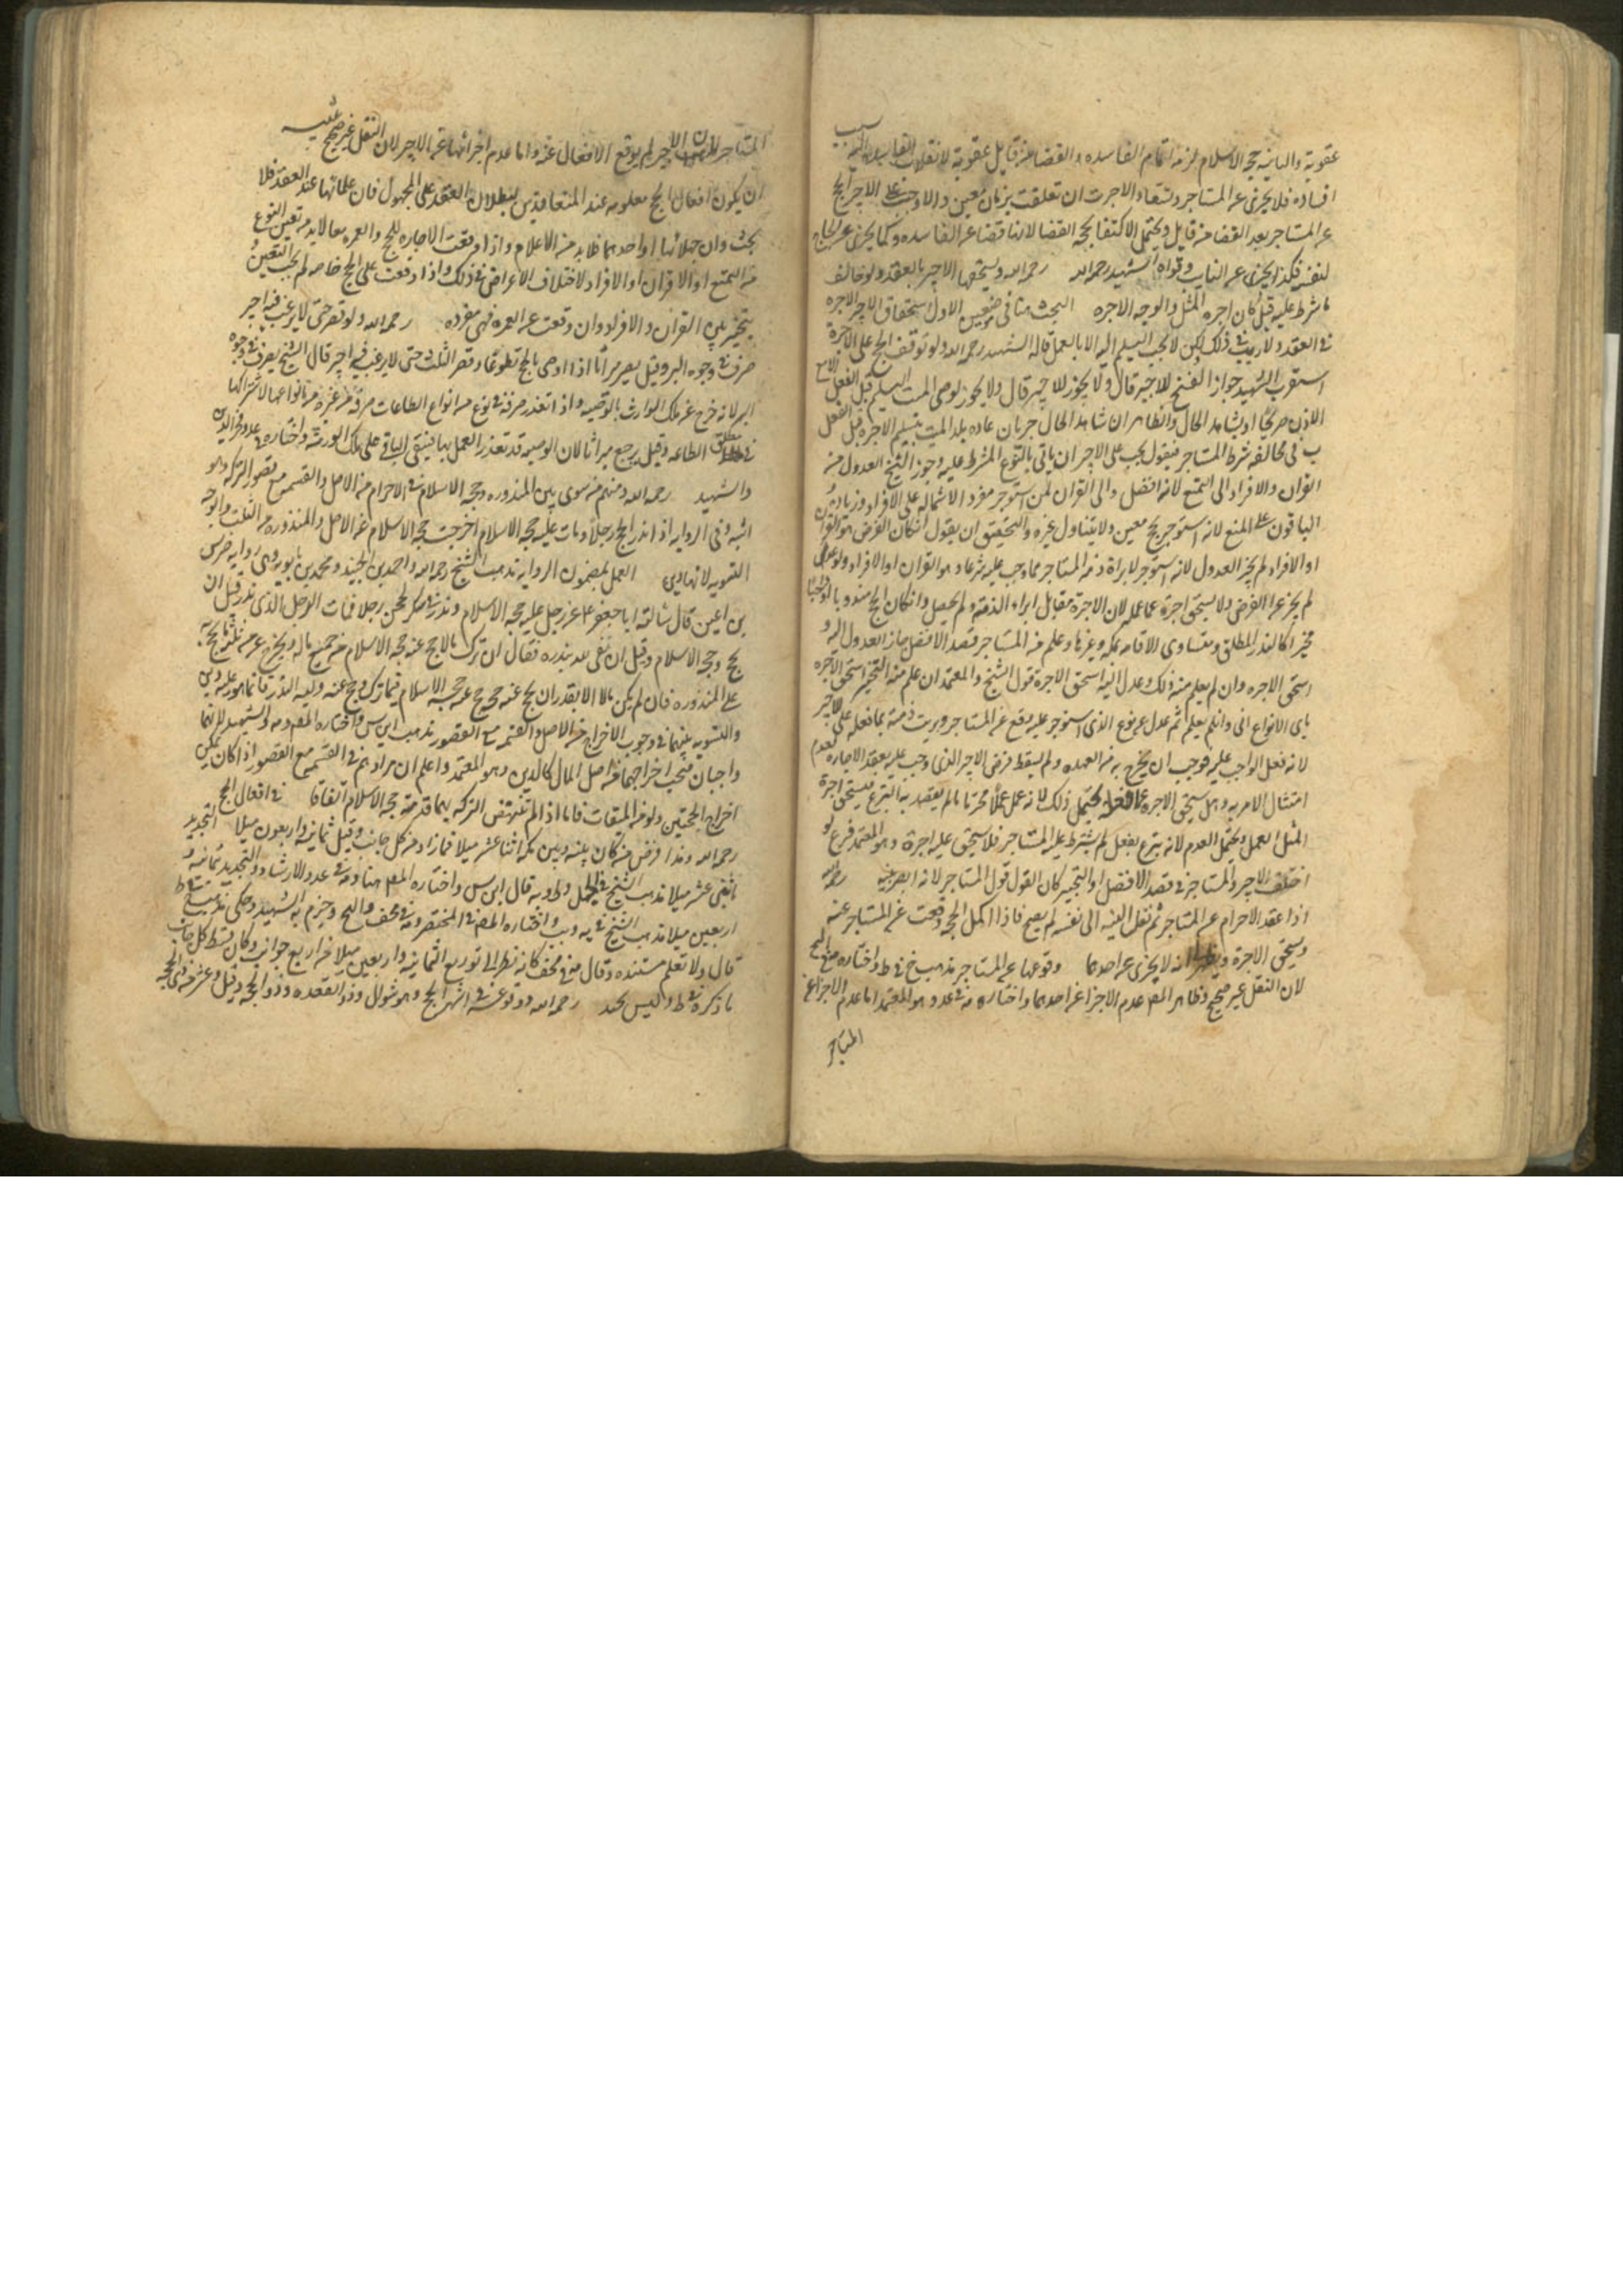 عقوبة والثانيه حجه الاسلام لزمه اتمام الفاسده و القضا من قابل عقوبة لانتقلاب الفاسده اليه بسبب
افساده فلا يجزى عن المستاجر وتستعاد الاجرت ان تعلقت بزمان معين والا وجب على الاجير الحج
عن المستاجر بعد القضا من قابل ويحتمل الاكتفا بحجه القضا لانها قضا عن الفاسده وكما يجزى عن الحاج
لنفسه فكذا يجزى عن النايب وقواه الشهيد رحمه الله رحمه الله ويستحقها الاجير بالعقد ولو خالف
ما شرط عليه قيل كان اجره المثل والوجه الاجره البحث هنا في موضعين الاول استحقاق الاجير الاجره
في العقد ولا ريب في ذلك لكن لا يجب التسليم اليه الا بالعمل قاله الشهيد رحمه الله ولو توقف الحج على الاجرة
استقرب الشهيد جواز الفسخ للاجير قال ولا يجوز لوصى الميت التسليم قبل الفعل الا مع
الاذن صريحا او بشاهد الحال والظاهر ان شاهد الحال جريان عاده بلد الميت بتسليم الاجره قبل الفعل
ب فى مخالفه شرط المستاجر فنقول يجب على الاجير ان ياتى بالنوع المشترط عليه وجوز الشيخ العدول من
القران والافراد الى التمتع لانه افضل والى القران لمن استوجر مفردا لاشتماله على الافراد وزيادة ومن
الباقون على المنع لانه استوجر بحج معين ولا يتناول غيره والتحقيق ان يقول ان كان الفرض هو القران
او الافراد لم يجز العدول لانه استوجر لابراة ذمه المستاجر مما وجب عليه شرعا وهو القران او الافراد ولو عدل
لم يجز عن الفرض ولا يستحق اجرة عما عمله لان الاجرة مقابل ابراء الذمة ولم يحصل وان كان الحج مندوبا او واجبا
مخيرا كالنذر المطلق ومتساوى الاقامه بمكه وغيرها وعلم من المستاجر قصد الافضل جاز العدول اليه و
استحق الاجره وان لم يعلم منه ذلك وعدل اليه استحق الاجرة قول الشيخ والمعتمد ان علم منه التخيير استحق الاجره
باى الانواع اتى وان لم يعلم اثم بعدل عن نوع الذى استوجر عليه وقع عن المستاجر وبريت ذمته بما فعله الاجير
لانه فعل الواجب عليه فوجب ان يخرج به من العهده ولم يسقط فرض الاجير الذى وجب عليه بعقد الاجاره لعدم
امتثال الامر به وهل يستحق الاجره يحتمل ذلك لانه عمل عملا محترما ما لم يقصد به التبرع فيستحق اجرة
المثل لعمل ويحتمل العدم لانه تبرع بفعل لم يشترط عليه المستاجر فلا يستحق عليه اجرة وهو المعتمد فرع لو
اختلف الاجير والمستاجر في قصد الافضل او التخيير كان القول قول المستاجر لانه ابصر بنيته رحمه الله
اذا عقد الاحرام عن المستاجر ثم نقل النيه الى نفسه لم يصح فاذا اكمل الحجه وقعت عن المستاجر عنه
ويستحق الاجرة ويظهر انه لا يجزى عن احدهما وقوعها عن المستاجر مذهب خ في ط واختاره
لان النقل غير صحيح وظاهر المص عدم الاجزا عن احدهما واختاره في عد وهو المعتمد اما عدم الاجزا عن
المستاجر
المستاجر فلان الاجير لم يوقع الافعال عنه واما عدم اجزائها عن الاجير لان النقل غير صحيح
ان يكون افعال الحج معلومه عند المتعاقدين لبطلان العقد على المجهول فان علماها عند العقد فلا
بحث وان جهلاها او احدهما فلابد من الاعلام واذا وقعت الاجاره للحج والعمره معا لابد من تعيين النوع
من التمتع او القران او الافراد لاختلاف الاغراض في ذلك واذا وقعت على الحج خاصه لم يجب التعيين
يتخير بين القران والافراد وان وقعت عن العمره فهى مفرده رحمه الله ولو قصر حتى لا يرغب فيه اجير
صرف في وجوه البر وقيل يصير ميراثا اذا اوصى بالحج تطوعا وقصر الثلث حتى لا يرغب فيه اجير قال الشيخ يصرف في وجوه
البر لانه خرج عن ملك الوارث بالوصيه واذا تعذر صرفه في نوع من انواع الطاعات صرف في غيره من انواعها لاشتراكها
في مطلق الطاعه وقيل يرجع ميراثا لان الوصيه قد تعذر العمل بها فيبقى الباقي على ملك الورثة واختاره في عد وفخر الدين
والشهيد رحمه الله ومنهم من سوى بين المنذوره وحجه الاسلام في الاحرام من الاصل والقسم مع قصور التركه وهو
اشبه وفى الروايه اذا نذر الحج رجلا ومات وعليه حجه الاسلام اخرجت حجه الاسلام من الاصل والمنذوره من الثلث والوجه
التسويه لانهما دين العمل بمضمون الروايه مذهب الشيخ رحمه الله واحمد بن الجنيد ومحمد بن بابويه وهى روايه ضريس
بن اعين قال سالت ابا جعفر ع عن رجل عليه حجه الاسلام ونذر في شكر ليحجن رجلا فمات الرجل الذى نذر قبل ان
يحج وحجه الاسلام وقبل ان يفى لله بنذره فقال ان ترك مالا حج عنه حجه الاسلام من جميع ماله ويخرج من ثلثه ما يحج به
على المنذوره فان لم يكن مالا الا بقدر ان يحج عنه حج عنه حجه الاسلام فيما ترك وحج عنه وليه النذر فانما هو عليه دين
والتسويه بينهما في وجوب الاخراج من الاصل والقسمه مع القصور مذهب ابن س واختاره المص وعد والشهيد لانهما
واجبان فيجب اخراجهما من اصل المال كالدين وهو المعتمد واعلم ان مرادهم في القسم مع القصور اذا كان يمكن
اخراج الحجتين ولو من الميقات فاما اذا لم تنهض التركه بهما قدمت حجه الاسلام اتفاقا في افعال الحج
رحمه الله وهذا فرض من كان بينه وبين مكه اثنا عشر ميلا فما زاد من كل جانب وقيل ثمانيه واربعون ميلا التحديد
باثنى عشر ميلا مذهب الشيخ في الجمل وط وبه قال ابن س واختاره المص هنا وفى عد والارشاد والتحديد بثمانيه و
اربعين ميلا مذهب الشيخ في يه ويب واختاره المص في المختصر وفي مختلف والتح وجزم به الشهيد وحكى مذهب ط
قال ولا نعلم مستنده وقال في مختلف كانه نظر الى توزيع الثمانيه واربعين ميلا من اربع جوانب وكان قسط كل جانب
ما ذكره في ط وليس بجيد رحمه الله ووقوعه في اشهر الحج وهو شوال وذو القعده وذو الحجه وقيل وعشر من ذى الحجه